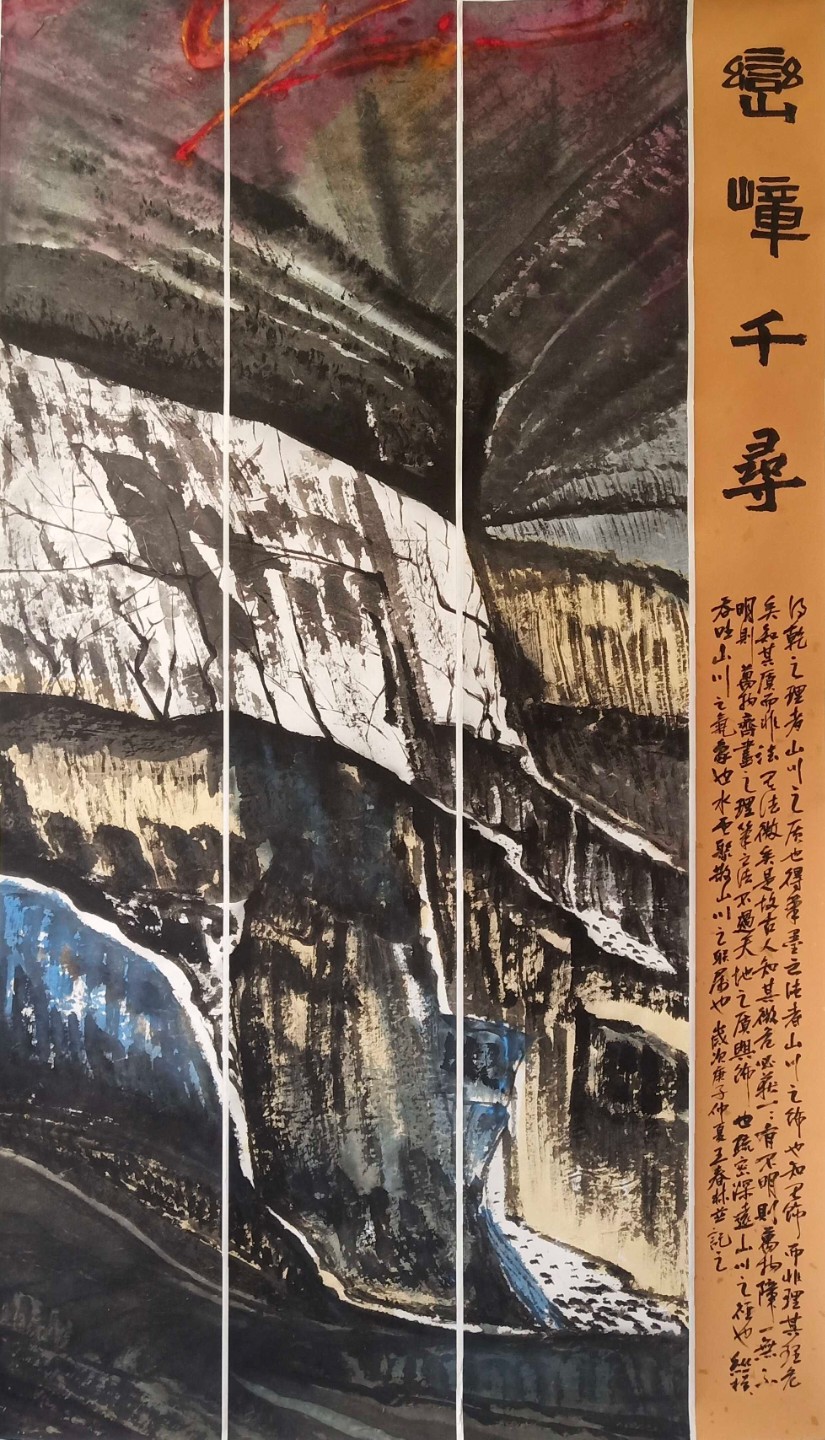 巒嶂千尋
得乾之理者山川之质也得筆墨之法者山川之飾也知其飾而非理其理危
矣知其质而非法其法微矣是故古人知其微危必获一一有不明則萬物障一無不
明則萬物齊畫之理筆之法不過天地之质與飾也疏密深遠山川之徑也縱横
吞吐山川之氣象也水雲聚散山川之聯屬也歲次庚子仲夏王春林并記之